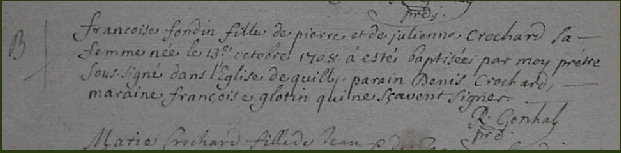 prbr.
B
françoise fondin fille de pierre et de julienne Crochard sa
femme née le 13e octobre 1708 a esté baptisée par moy prétre
sous-signé dans l'Eglise de quilly. parain Denis Crochard,
maraine françoise glotin qui ne sçavent signer.
R. Gonhal
prb.
Marie Crochard fille de Jean